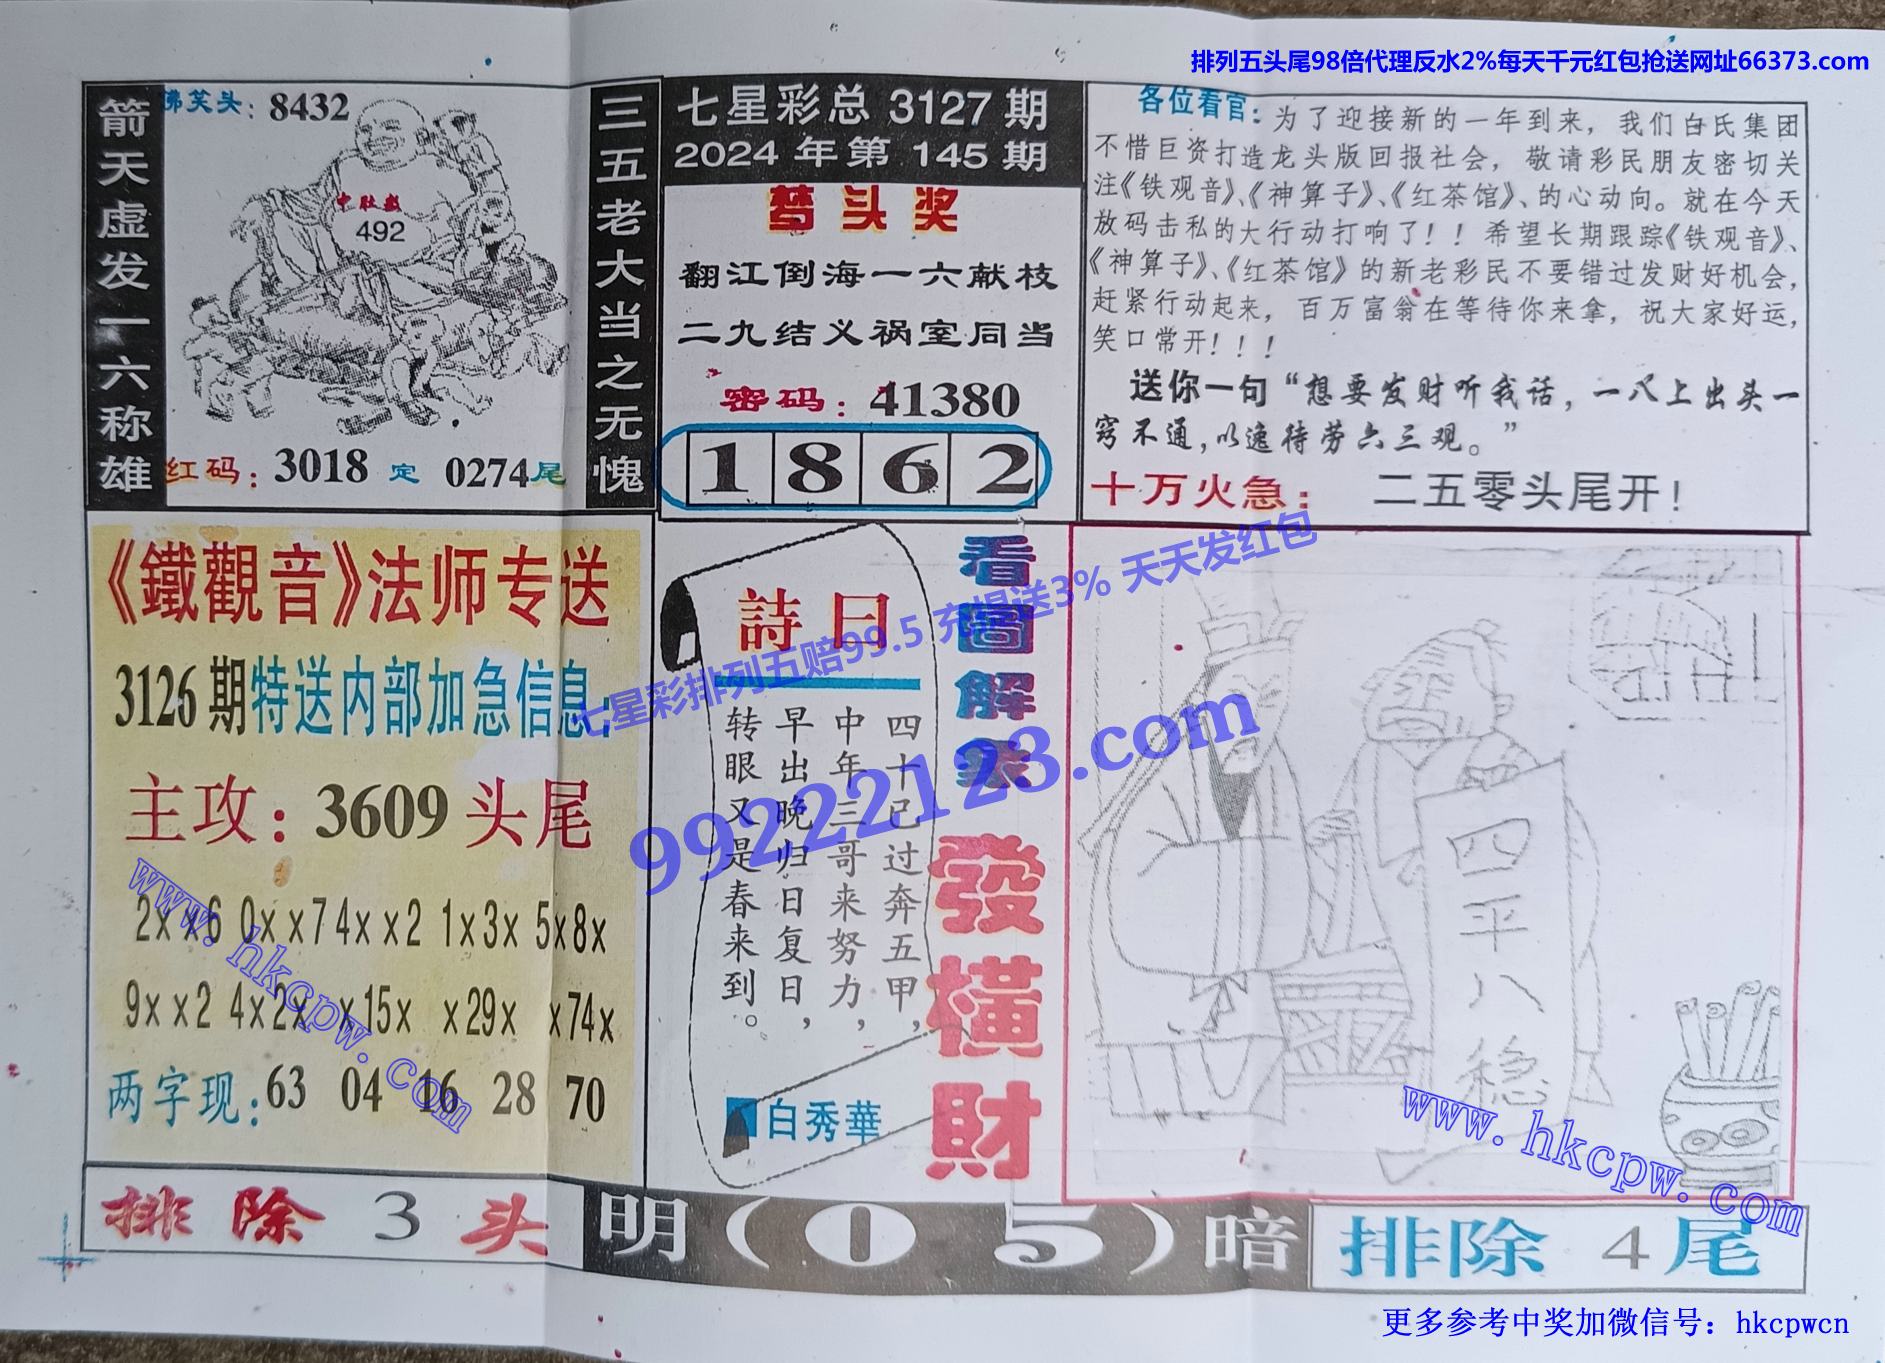 排列五头尾98倍代理反水2%每天千元红包抢送网址66373.com
箭天虚发一六称雄
佛笑头：8432
中肚数
492
红码：3018 定 0274尾
三五老大当之无愧
七星彩总 3127 期
2024 年第 145 期
梦头奖
翻江倒海一六献枝
二九结义祸室同当
密码：41380
1862
各位看官：为了迎接新的一年到来，我们白氏集团
不惜巨资打造龙头版回报社会，敬请彩民朋友密切关
注《铁观音》、《神算子》、《红茶馆》、的心动向。就在今天
放码击私的大行动打响了！！希望长期跟踪《铁观音》、
《神算子》、《红茶馆》的新老彩民不要错过发财好机会，
赶紧行动起来，百万富翁在等待你来拿，祝大家好运，
笑口常开！！！
送你一句“想要发财听我话，一八上出头一
窍不通，以逸待劳六三观。”
十万火急：二五零头尾开！
《鐵觀音》法师专送
3126期特送内部加急信息：
主攻：3609头尾
2××6 0××7 4××2 1×3× 5×8×
9××2 4×2× ×15× ×29× ×74×
两字现：63 04 16 28 70
詩曰
四十已过奔五甲，
中年三哥来努力，
早出晚归日复日，
转眼又是春来到。
白秀華
看圖解衆
發橫財
四平八稳
七星彩排列五赔99.5 充提送3% 天天发红包
99222123.com
www.hkcpw.com
www.hkcpw.com
排除3头
明（05）暗
排除4尾
更多参考中奖加微信号：hkcpwcn